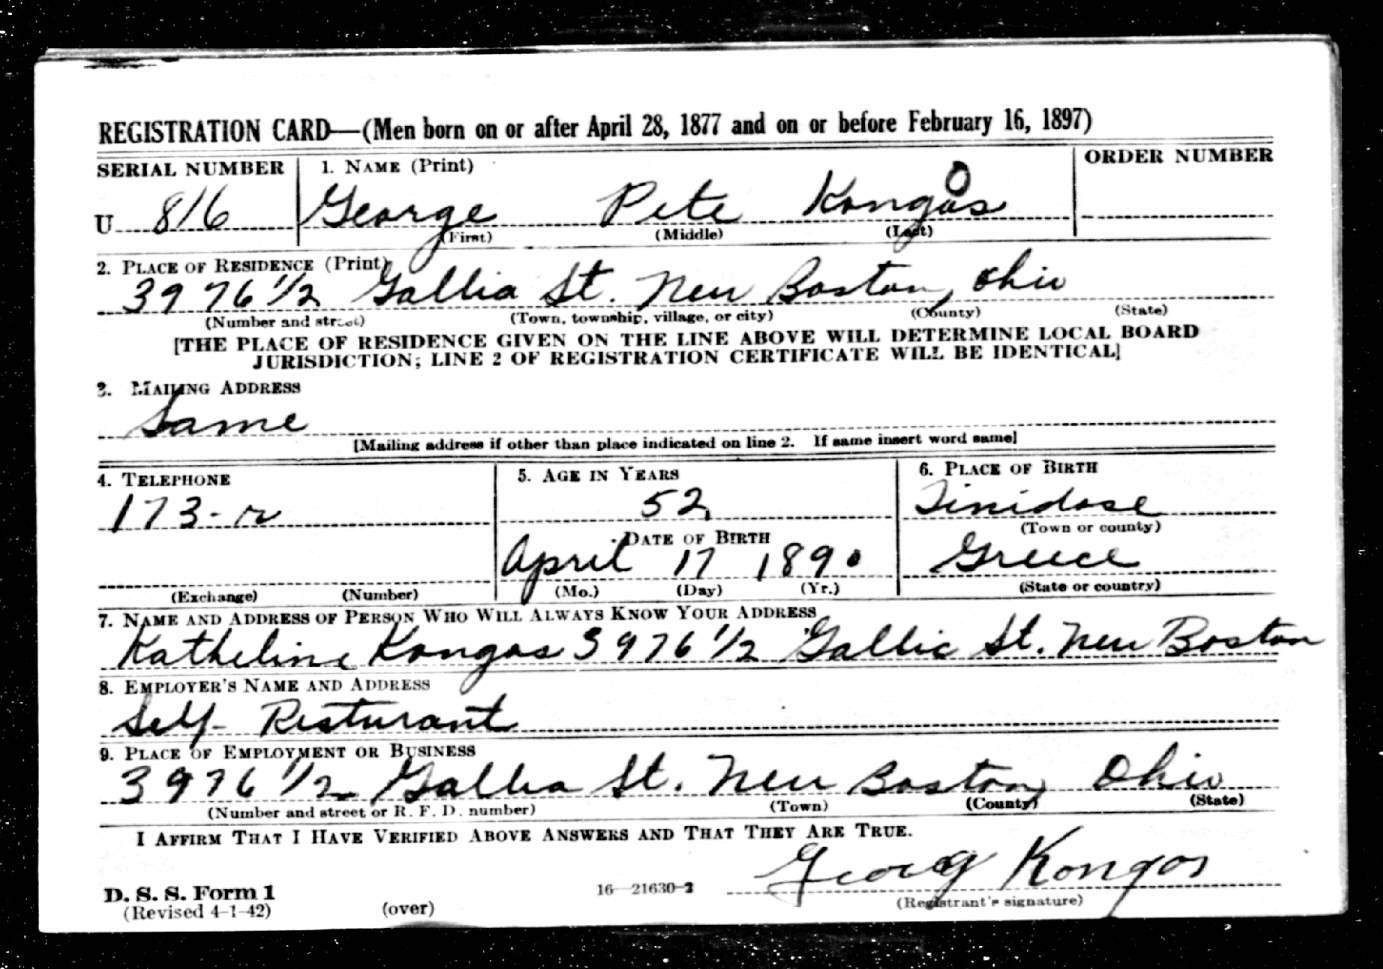 REGISTRATION CARD—(Men born on or after April 28, 1877 and on or before February 16, 1897)
SERIAL NUMBER 1. NAME (Print) ORDER NUMBER
U 816 George Pete Kongos O
(First) (Middle) (Last)
2. PLACE OF RESIDENCE (Print)
3976 1/2 Gallia St. New Boston, Ohio
(Number and street) (Town, township, village, or city) (County) (State)
[THE PLACE OF RESIDENCE GIVEN ON THE LINE ABOVE WILL DETERMINE LOCAL BOARD
JURISDICTION; LINE 2 OF REGISTRATION CERTIFICATE WILL BE IDENTICAL]
3. MAILING ADDRESS
Same
[Mailing address if other than place indicated on line 2. If same insert word same]
4. TELEPHONE 5. AGE IN YEARS 6. PLACE OF BIRTH
173-r 52 Tinidose
(Town or county)
DATE OF BIRTH
April 17 1890 Greece
(Exchange) (Number) (Mo.) (Day) (Yr.) (State or country)
7. NAME AND ADDRESS OF PERSON WHO WILL ALWAYS KNOW YOUR ADDRESS
Katheline Kongos 3976 1/2 Gallia St. New Boston
8. EMPLOYER'S NAME AND ADDRESS
Self- Resturant
9. PLACE OF EMPLOYMENT OR BUSINESS
3976 1/2 Gallia St. New Boston, Ohio
(Number and street or R. F. D. number) (Town) (County) (State)
I AFFIRM THAT I HAVE VERIFIED ABOVE ANSWERS AND THAT THEY ARE TRUE.
Georg Kongos
D. S. S. Form 1 16—21630-2 (Registrant's signature)
(Revised 4-1-42) (over)